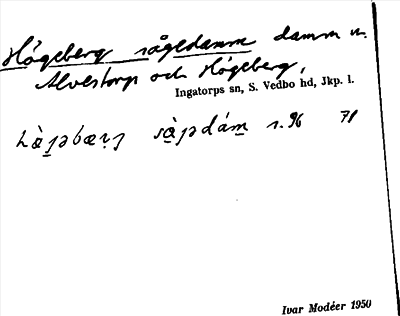 Högeberg sågedamm damm m.
Alvestorp och Högeberg,
Ingatorps sn, S. Vedbo hd, Jkp. l.
s. 96 71
Ivar Modéer 1950